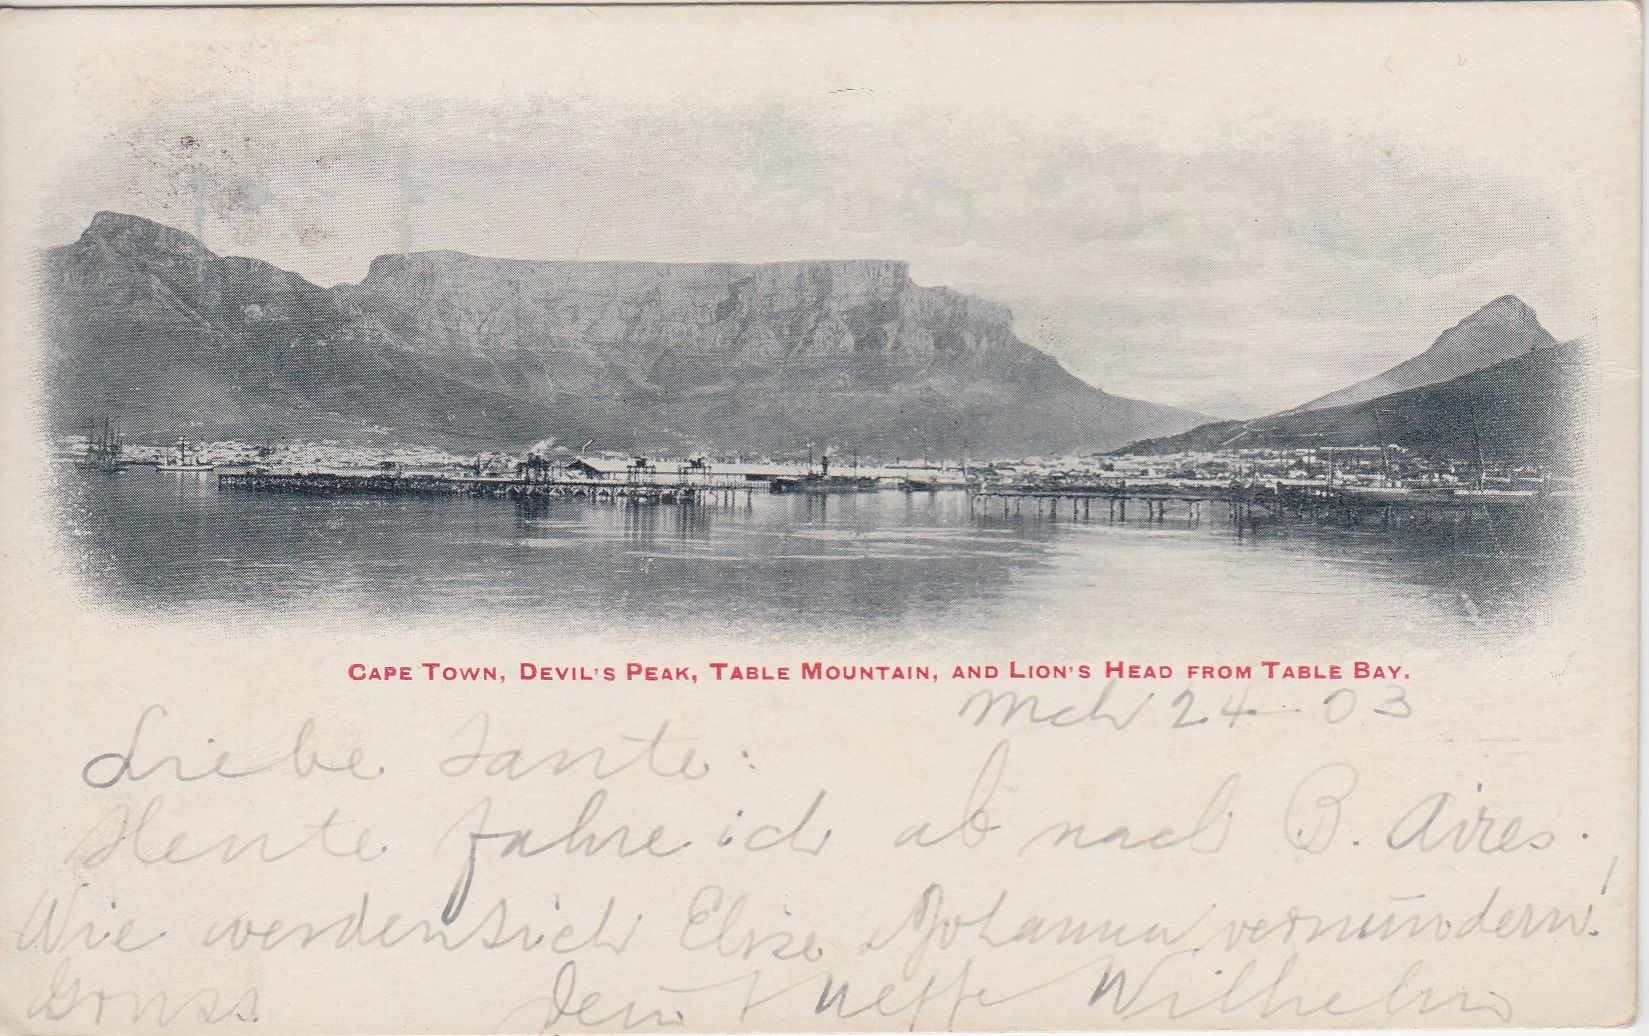 CAPE TOWN, DEVIL'S PEAK, TABLE MOUNTAIN, AND LION'S HEAD FROM TABLE BAY.
Mch 24 03
Liebe Tante:
Heute fahre ich ab nach B. Aires.
Wie werden sich Elise Johanna verwundern!
Gruss Dein Neffe Wilhelm